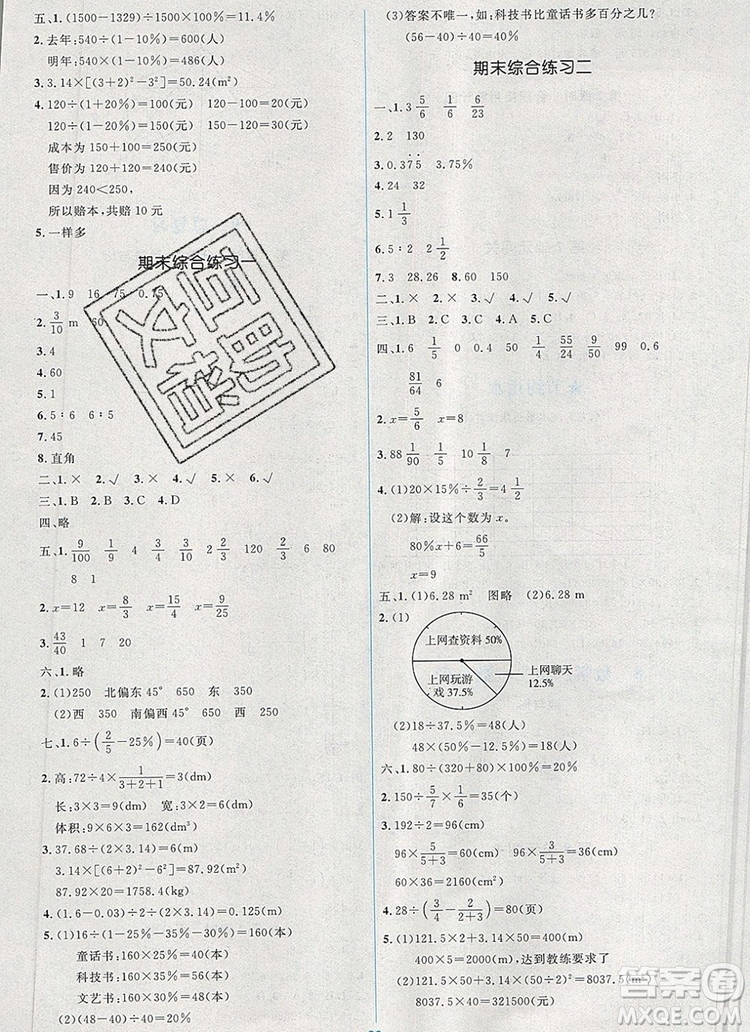 五、1. (1500−1329)÷(1500×100%)=11.4%
2. 去年:540÷(1−10%)=600(人)
明年:540×(1−10%)=486(人)
3. 3.14×[(3+2)²−3²]=50.24(m)
4. 120÷(1+20%)=100(元) 120−100=20(元)
120÷(1−20%)=150(元) 150−120=30(元)
成本为 150+100=250(元)
售价为 120+120=240(元)
因为 240<250,
所以赔本,共赔 10 元
5. 一样多
期末综合练习一
一、1. 9 16 75 0.75
2. 3/10 m
3. 4
4. 60
5. 6:5 6:5
7. 45
8. 直角
二、1.× 2.√ 3.× 4.√ 5.√
三、1.B 2.B 3.C 4.D
四、略
五、1. 9/100 1/9 144 2/3 2 1/2 120 2/3 6 80
8 1
2. x=12 x=8/15 x=8/9 x=16
3. 43/40 1 7 20
六、1. 略
2. (1)250 北偏东 45° 650 350
(2)西 350 南偏西 45° 650
七、1. 6÷(2/5−25%)=40(页)
2. 高:72÷4×1/(3+2+1)=3(dm)
长:3×3=9(dm) 宽:3×2=6(dm)
体积:9×6×3=162(dm³)
3. 37.68÷(2×3.14)=6(m)
3.14×[(6+2)²−6²]=87.92(m²)
87.92×20=1758.4(kg)
4. (1.6−0.03)÷2÷(2×3.14)=0.125(m)
5. (1)16÷(1−25%−35%−30%)=160(本)
童话书:160×25%=40(本)
科技书:160×35%=56(本)
文艺书:160×30%=48(本)
(2)(48−40)÷40=20%
(3)答案不唯一,如:科技书比童话书多百分之几?
(56−40)÷40=40%
期末综合练习二
一、1. 3 5/6 1/6 6/23
2. 2 130
3. 0.3̇75̇
4. 24 32
5. 1 1/3
6. 5:2 2 1/2
7. 3 28.26 8. 60 150
二、1.× 2.× 3.√ 4.× 5.×
三、1.B 2.C 3.C 4.A 5.C
四、1. 6 1/5 0 0.4 1/2 55/24 9/50 99 0.6
81/64 6
2. x=5/6 x=8
3. 88 1/90 10 1/8 7
4. (1)20×15%÷2/3=4.5
(2)解:设这个数为 x。
80%x+6=66/5
x=9
五、1. (1)6.28 m 图略 (2)6.28 m
2. (1)
上网查资料 50%
上网玩游
戏 37.5%
上网聊天
12.5%
(2)18÷37.5%=48(人)
48×(50%−12.5%)=18(人)
六、1. 80÷(320+80)×100%=20%
2. 150÷5/7×1/6=35(个)
3. 192÷2=96(cm)
96×5/(5+3)=60(cm) 96×3/(5+3)=36(cm)
60×36=2160(cm²)
4. 28÷(3/4−2/(2+3))=80(页)
5. (1)121.5×2+3.14×50=400(m)
400×5=2000(m),达到教练要求了
(2)121.5×50+3.14×(50÷2)²=8037.5(m²)
8037.5×40=321500(元)
答案圈
MXQE.COM